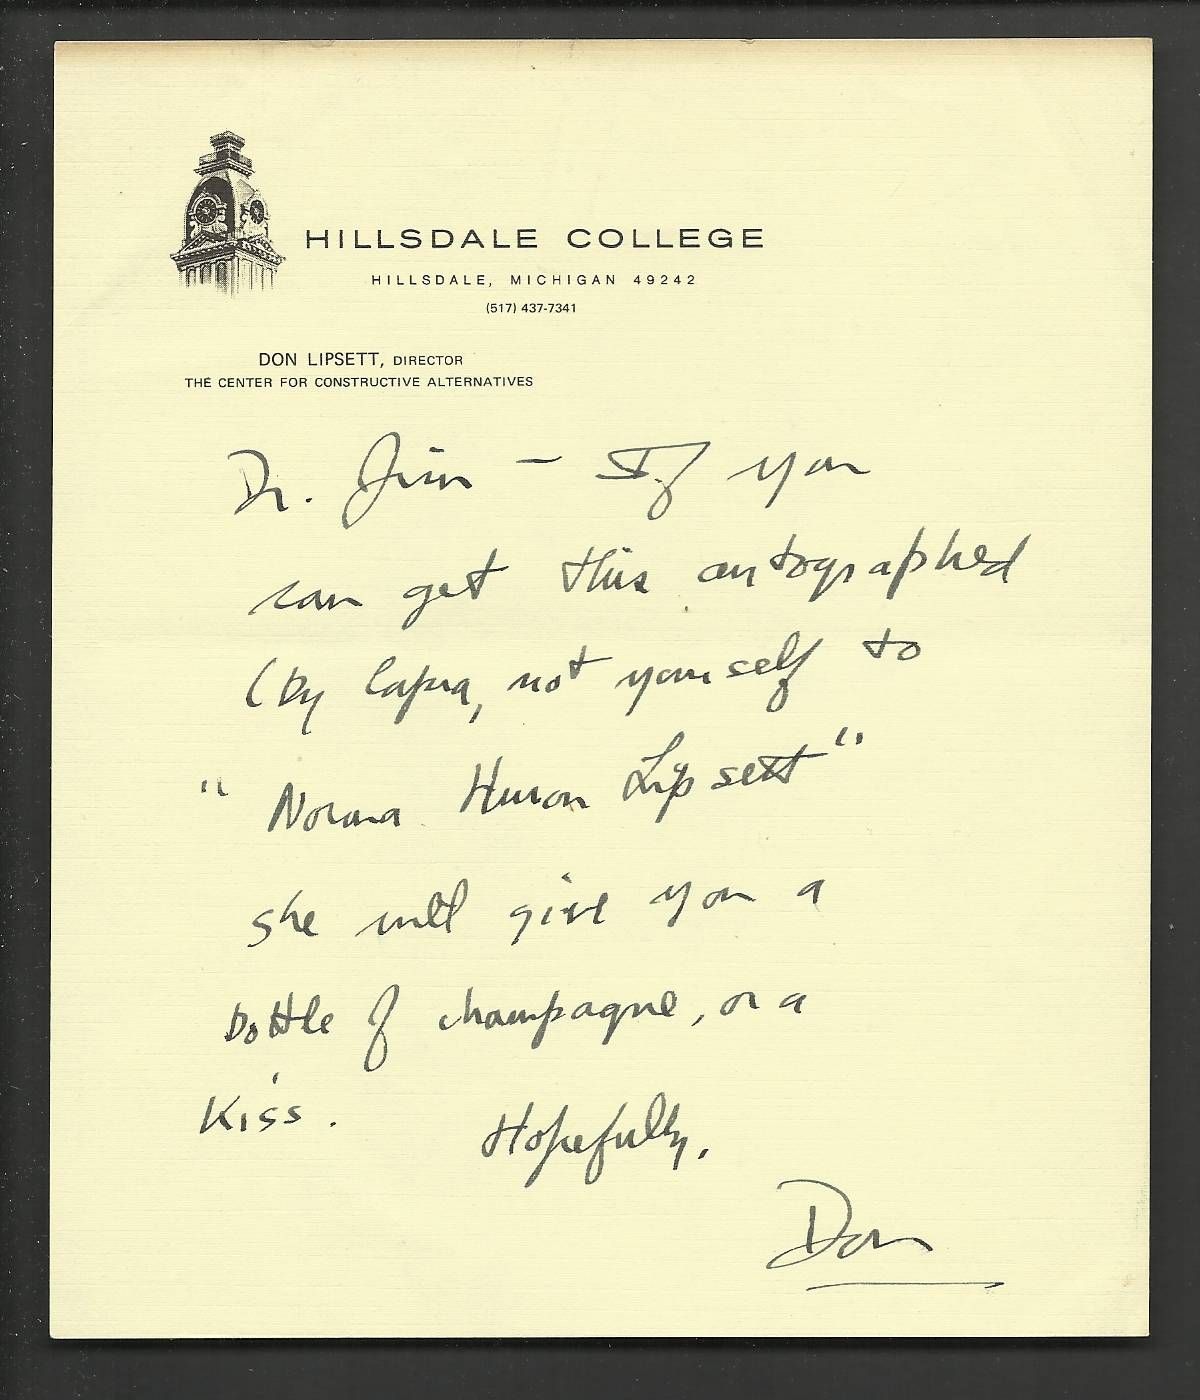 HILLSDALE COLLEGE
HILLSDALE, MICHIGAN 49242
(517) 437-7341
DON LIPSETT, DIRECTOR
THE CENTER FOR CONSTRUCTIVE ALTERNATIVES
Dr. Jim – If you
can get this autographed
(by Capra, not yourself to
" Norma Huron Lipsett"
she will give you a
bottle of champagne, or a
Kiss.
Hopefully,
Don